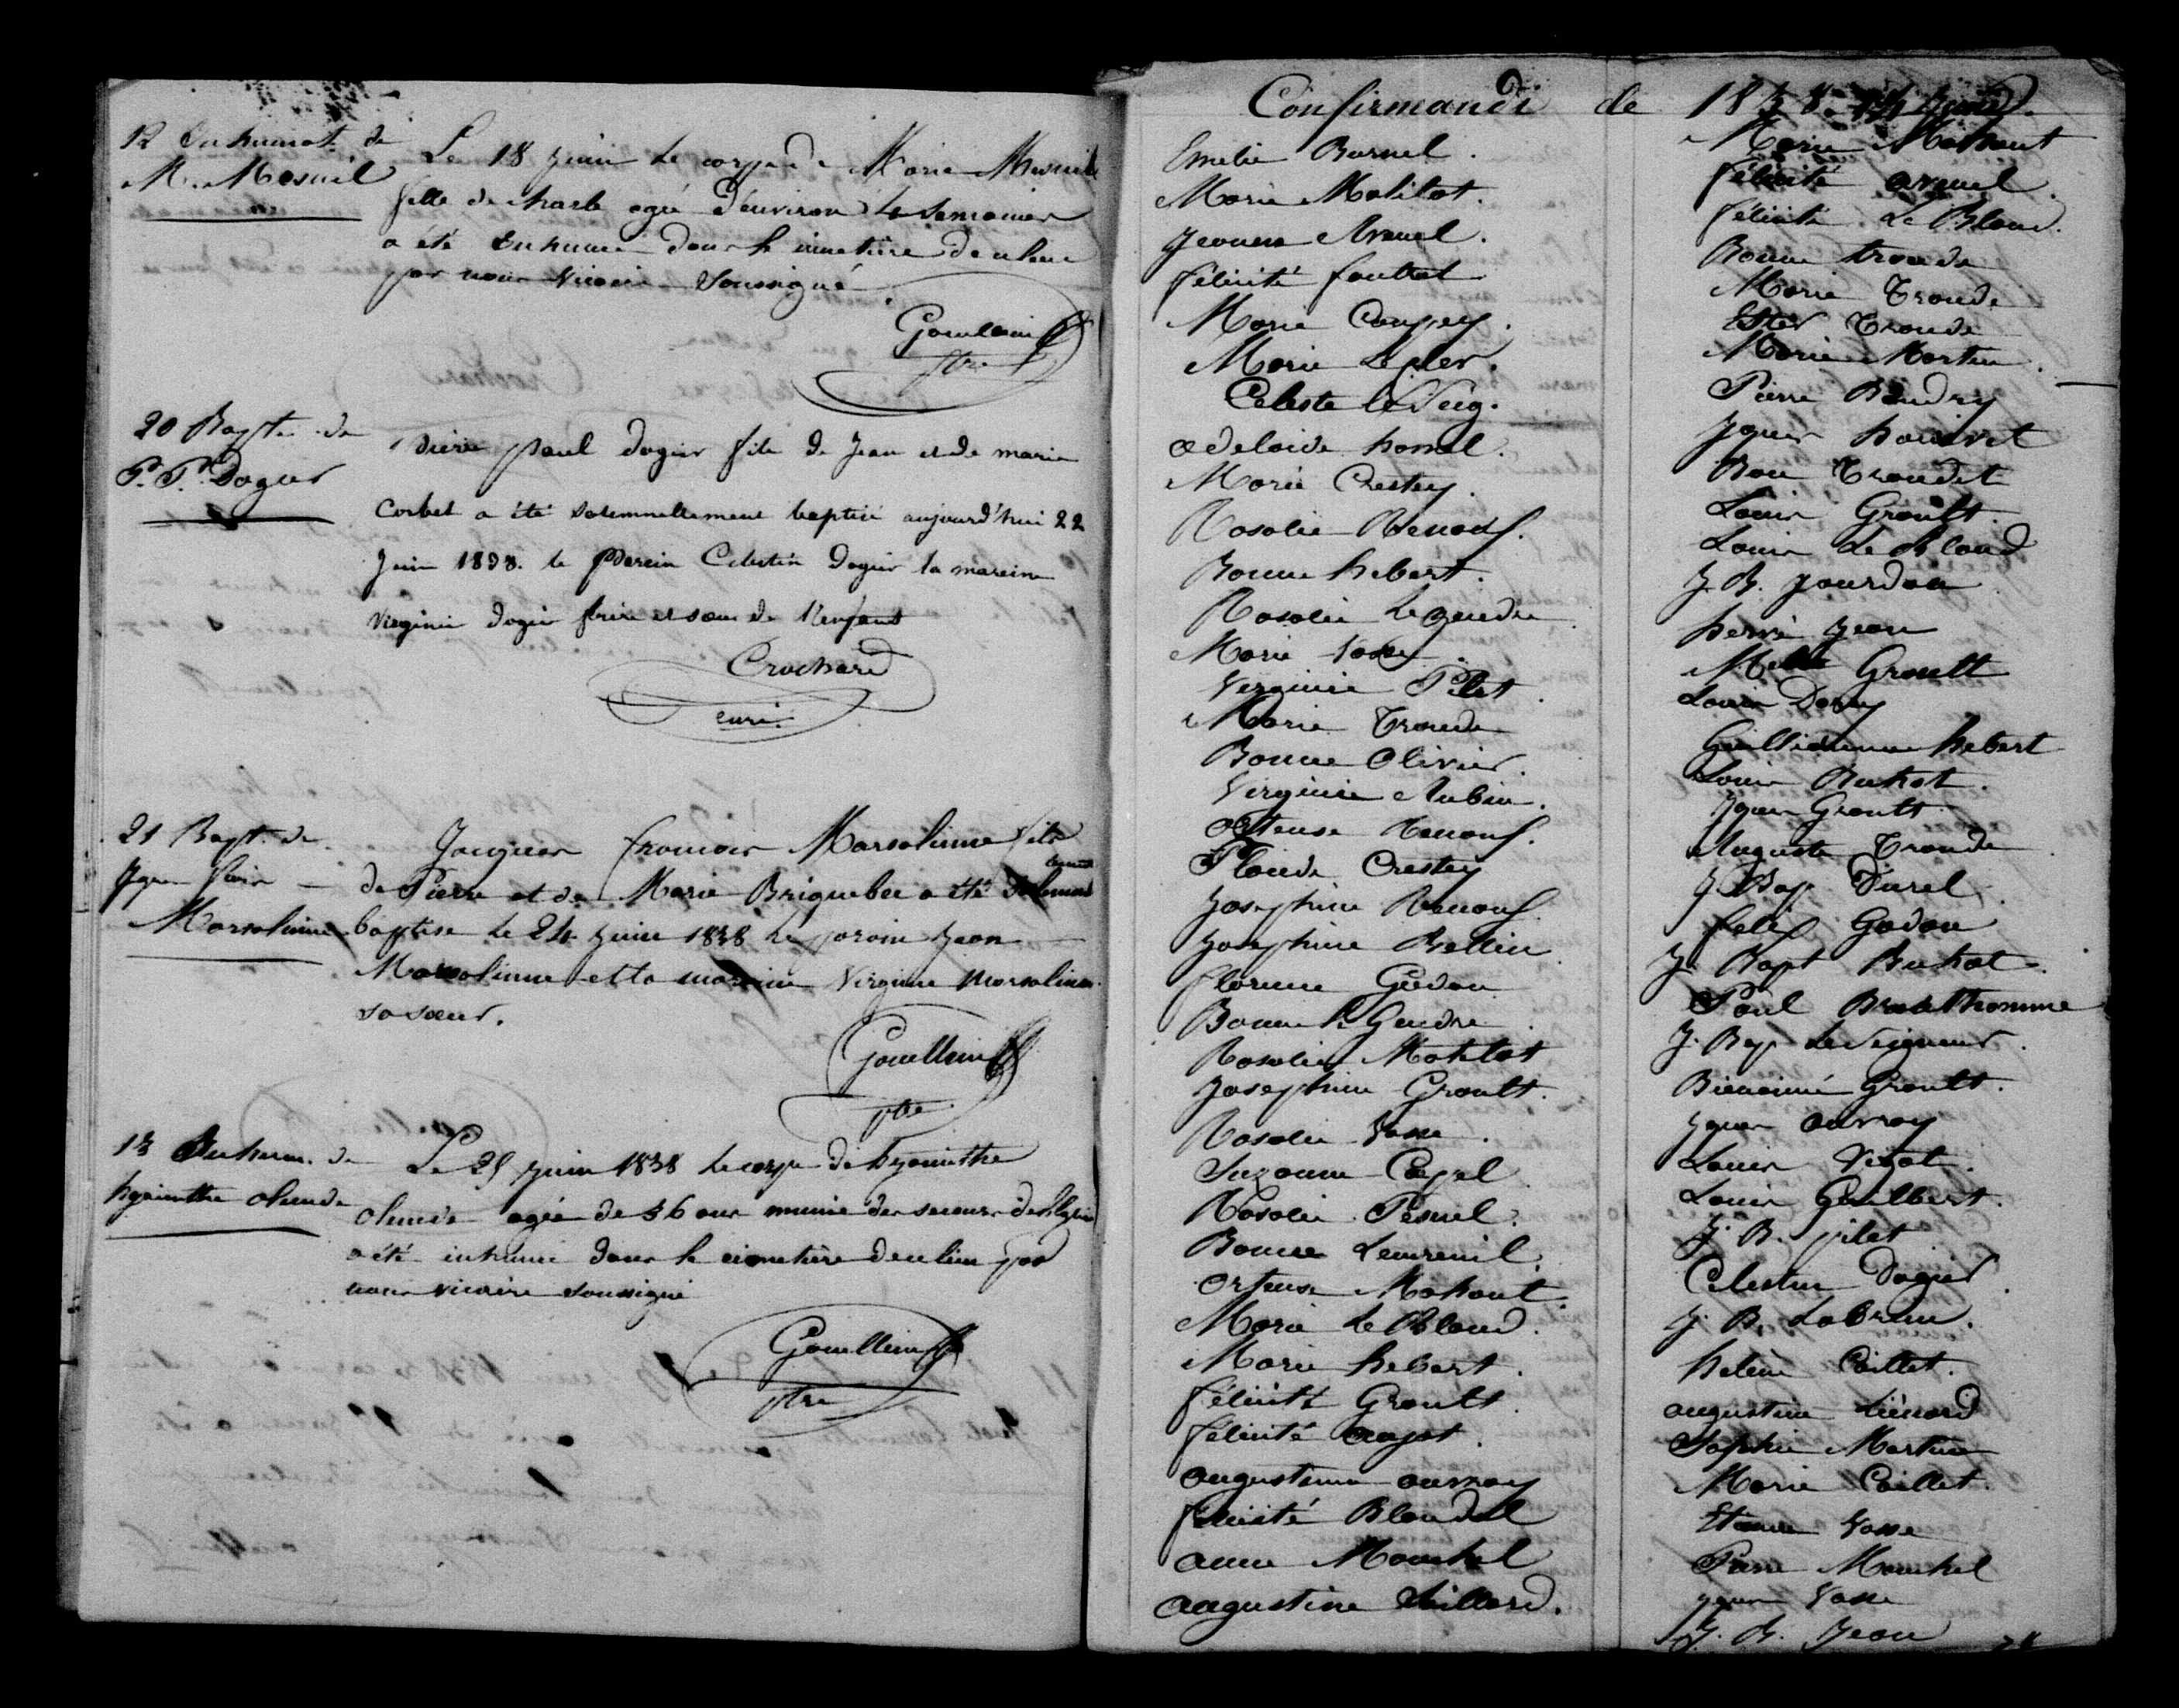 12 Inhumat. de
M. Mesnil
Le 18 juin le corps de Marie Mesnil
fille de charle agée d'environ 4 semaines
a été Inhumé dans le cimetière de ce lieu
par nous Vicaire Soussigné
Gouellain
ptre
20 Bapt. de
P. P. Dogier
Pierre paul dogier fils de Jean et de marie
Corbet a été solennellement baptisé aujourd'hui 22
Juin 1838. le Parein Celestin dogier la mareine
Virginie dogier frère et sœur de l'enfant
Crochard
curé
21 Bapt. de
Jques
Marsolinne
Jacques françois Marsolinne fils
de Pierre et de Marie Briquebec a été
baptisé le 24 juin 1838 le parain Jean
Marsolinne et la maraine Virginie Marsolinne
sa sœur.
Gouellain
ptre
13 Inhum. de
hyacinthe
Le 25 juin 1838 le corps de hyacinthe
agée de 36 ans munie des secours de l'église
a été inhumé dans le cimetière de ce lieu par
nous vicaire soussigné
Gouellain
ptre
Confirmands de 1838
Emelie Burnel.
Marie Matilat.
Jeanne Avenel.
félicité
Marie Coupey.
Marie
Celeste
adelaide hamel.
Marie Crestey.
Rosalie Renouf.
Bonne hebert.
Rosalie Legendre
Marie Vasse.
Virginie Pilet.
Marie Troude
Bonne Olivier.
Virginie Aubin.
Renouf.
Crestey
Josephine Renouf.
Josephine Bellin
florence Gédon
Bonne le Gendre
Rosalie Matilat
Josephine Groult.
Rosalie Vasse.
Suzanne Capel.
Rosalie Pesnel.
Bonne
ortense Mahaut.
Marie le Bloud.
Marie hebert.
félicité Groult.
félicité
augustinne auvray
félicité Blondel
anne Mouchel
augustine
Marie Mahaut
félicité avenel.
félicité Le Bloud.
Bonne troude
Marie Troude
Ester Troude
Marie Martin.
Pierre Baudry
Jques
Bon Troudet
Louis Groult.
Louis Le Bloud
J. B. Jourdan
hervé Jean
Groult
Louis
Guilliaumme hebert
Louis Buhot.
Jques Groult.
Auguste Troude
J. Bap. Durel.
felix Gadon
J. Bapt Buhot.
Paul
J. Bap. Leseigneur.
Bienaimé Groult.
Jques auvray
Louis Vigot.
Louis Guilbert.
J. B. pilet
Celestin Dogier
J. B. Lebrun.
helène Caillet.
augustine Liénard
Sophie Martin
Marie Caillet.
Etienne Vasse
Pierre Mouchel
Jques Vasse
J. B. Jean